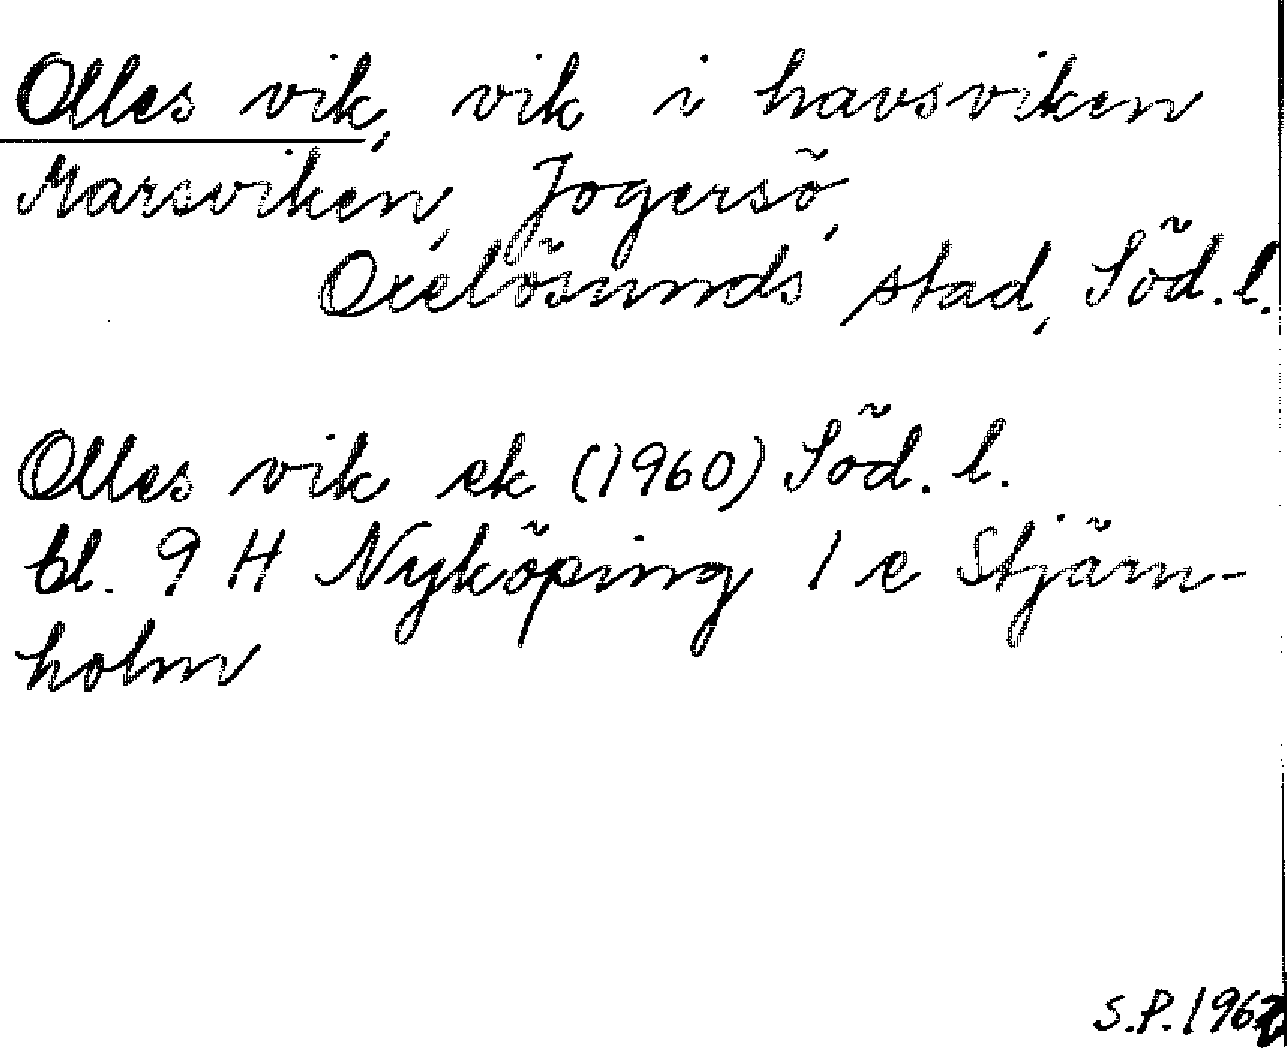 Olles vik, vik i havsviken
Marsviken, Jogersö,
Oxelösunds stad, Söd. l.
Olles vik ek (1960) Söd. l.
bl. 9 H Nyköping 1 e Stjärn-
holm
S.P. 1962